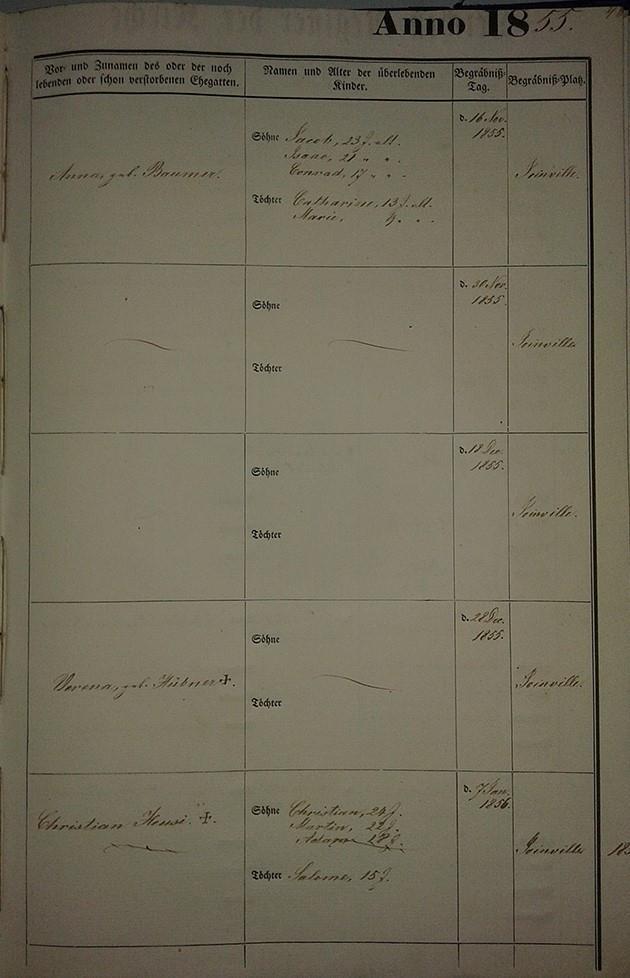 Anno 1855.
Vor- und Zunamen des oder der noch
lebenden oder schon verstorbenen Ehegatten.
Namen und Alter der überlebenden
Kinder.
Begräbniß-
Tag.
Begräbniß-Platz.
Anna, geb. Baumer.
Söhne Jacob, 23 J. alt.
Isaac, 21 " ".
Conrad, 17 " ".
Töchter Catharine, 13 J. alt.
Marie, 9 " ".
d. 16 Nov.
1855.
Joinville.
Söhne
Töchter
d. 30 Nov.
1855.
Joinville
Söhne
Töchter
d. 18 Dec.
1855.
Joinville.
Verena, geb. Hübner †.
Söhne
Töchter
d. 28 Dec.
1855.
Joinville.
Christian †.
Söhne Christian, 24 J.
Martin, 22 J.
Adam 18 J.
Töchter Salome, 15 J.
d. 7 Jan.
1856.
Joinville